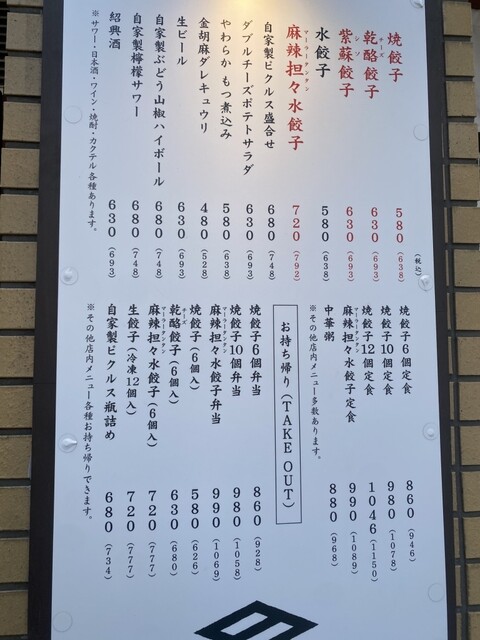 焼餃子 580(638)
乾酪餃子 630(693)
チーズ
紫蘇餃子 630(693)
シソ
水餃子 580(638)
麻辣担々水餃子 720(792)
マーラータンタン
自家製ピクルス盛合せ 680(748)
ダブルチーズポテトサラダ 630(693)
やわらか もつ煮込み 580(638)
金胡麻ダレキュウリ 480(528)
生ビール 630(693)
自家製ぶどう山椒ハイボール 680(748)
自家製檸檬サワー 680(748)
紹興酒 630(693)
※サワー・日本酒・ワイン・焼酎・カクテル各種あります。
(税込)
焼餃子6個定食 860(946)
焼餃子10個定食 980(1078)
焼餃子12個定食 1046(1150)
麻辣担々水餃子定食 990(1089)
マーラータンタン
中華粥 880(968)
※その他店内メニュー多数あります。
お持ち帰り(TAKE OUT)
焼餃子6個弁当 860(928)
焼餃子10個弁当 980(1058)
麻辣担々水餃子弁当 990(1069)
マーラータンタン
焼餃子(6個入) 580(626)
乾酪餃子(6個入) 630(680)
チーズ
麻辣担々水餃子(6個入) 720(777)
マーラータンタン
生餃子(冷凍12個入) 720(777)
自家製ピクルス瓶詰め 680(734)
※その他店内メニュー各種お持ち帰りできます。